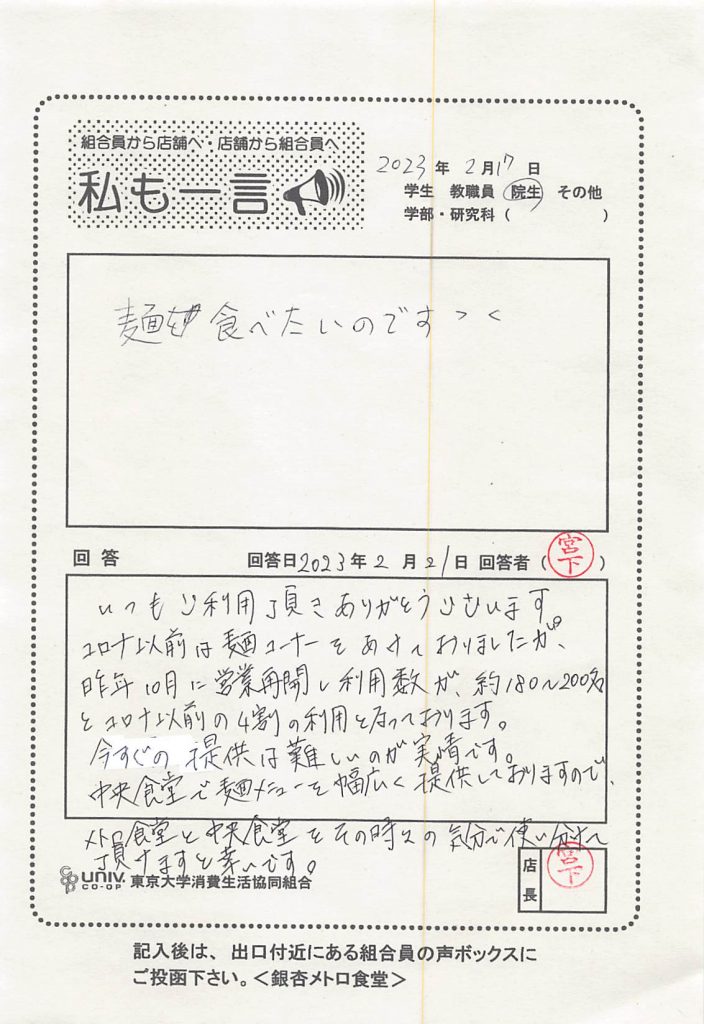 組合員から店舗へ・店舗から組合員へ
私も一言
2023年2月17日
学生 教職員 院生 その他
学部・研究科（ ）
麺を食べたいのです＞＜
回答 回答日2023年2月21日 回答者（宮下）
いつもご利用頂きありがとうございます。
コロナ以前は麺コーナーをあけておりましたが、
昨年10月に営業再開し利用数が、約180～200名
とコロナ以前の4割の利用となっております。
今すぐの提供は難しいのが実情です。
中央食堂で麺メニューを幅広く提供しておりますので、
メトロ食堂と中央食堂をその時々の気分で使い分けて
頂けますと幸いです。
UNIV. CO-OP 東京大学消費生活協同組合
店長 宮下
記入後は、出口付近にある組合員の声ボックスに
ご投函下さい。＜銀杏メトロ食堂＞